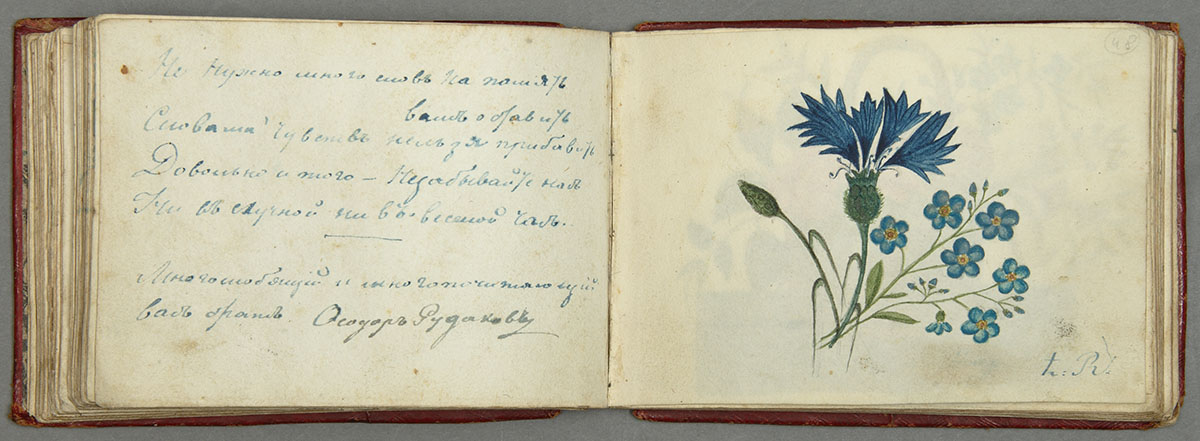 Не нужно много словъ на память
вамъ объявить
Словами чувствъ нельзя прибавить
Довольно и того – Незабывайте насъ
Ни въ скучной ни въ веселой часъ.
Многолюбящій и многопочитающій
васъ братъ. Ѳеодоръ Рудаковъ
48